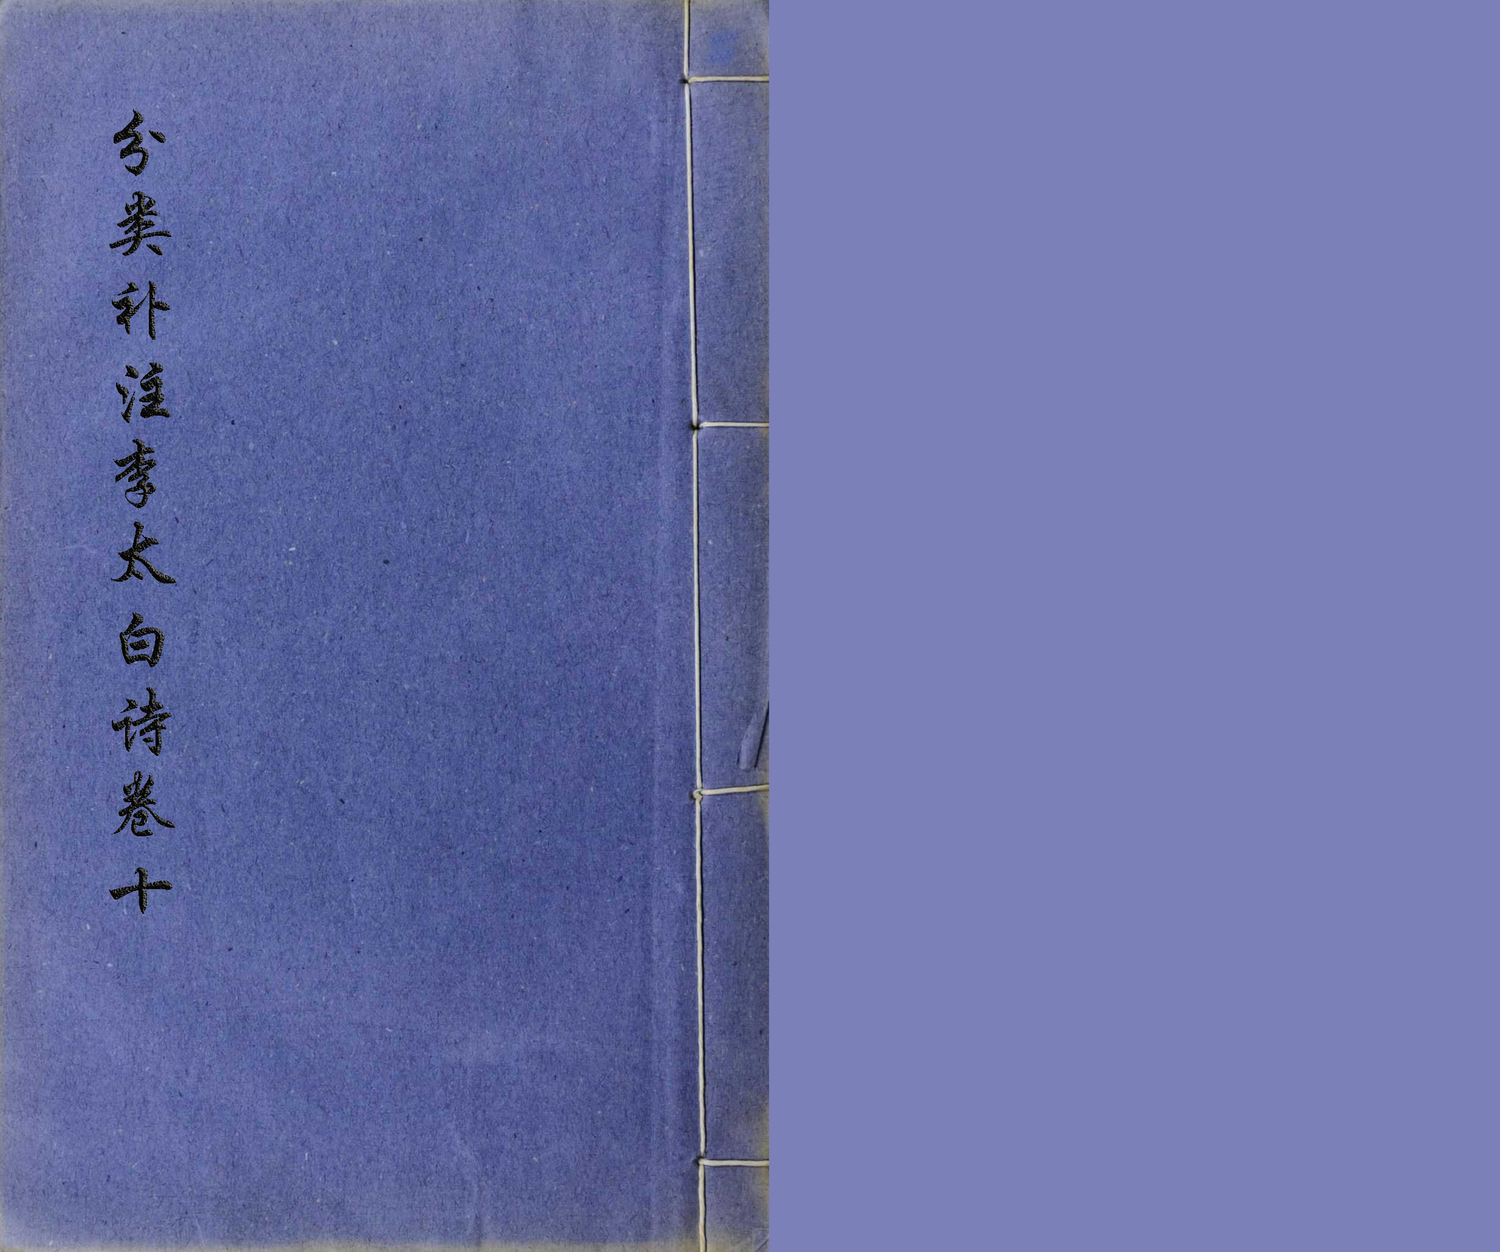 分类补注李太白诗卷十